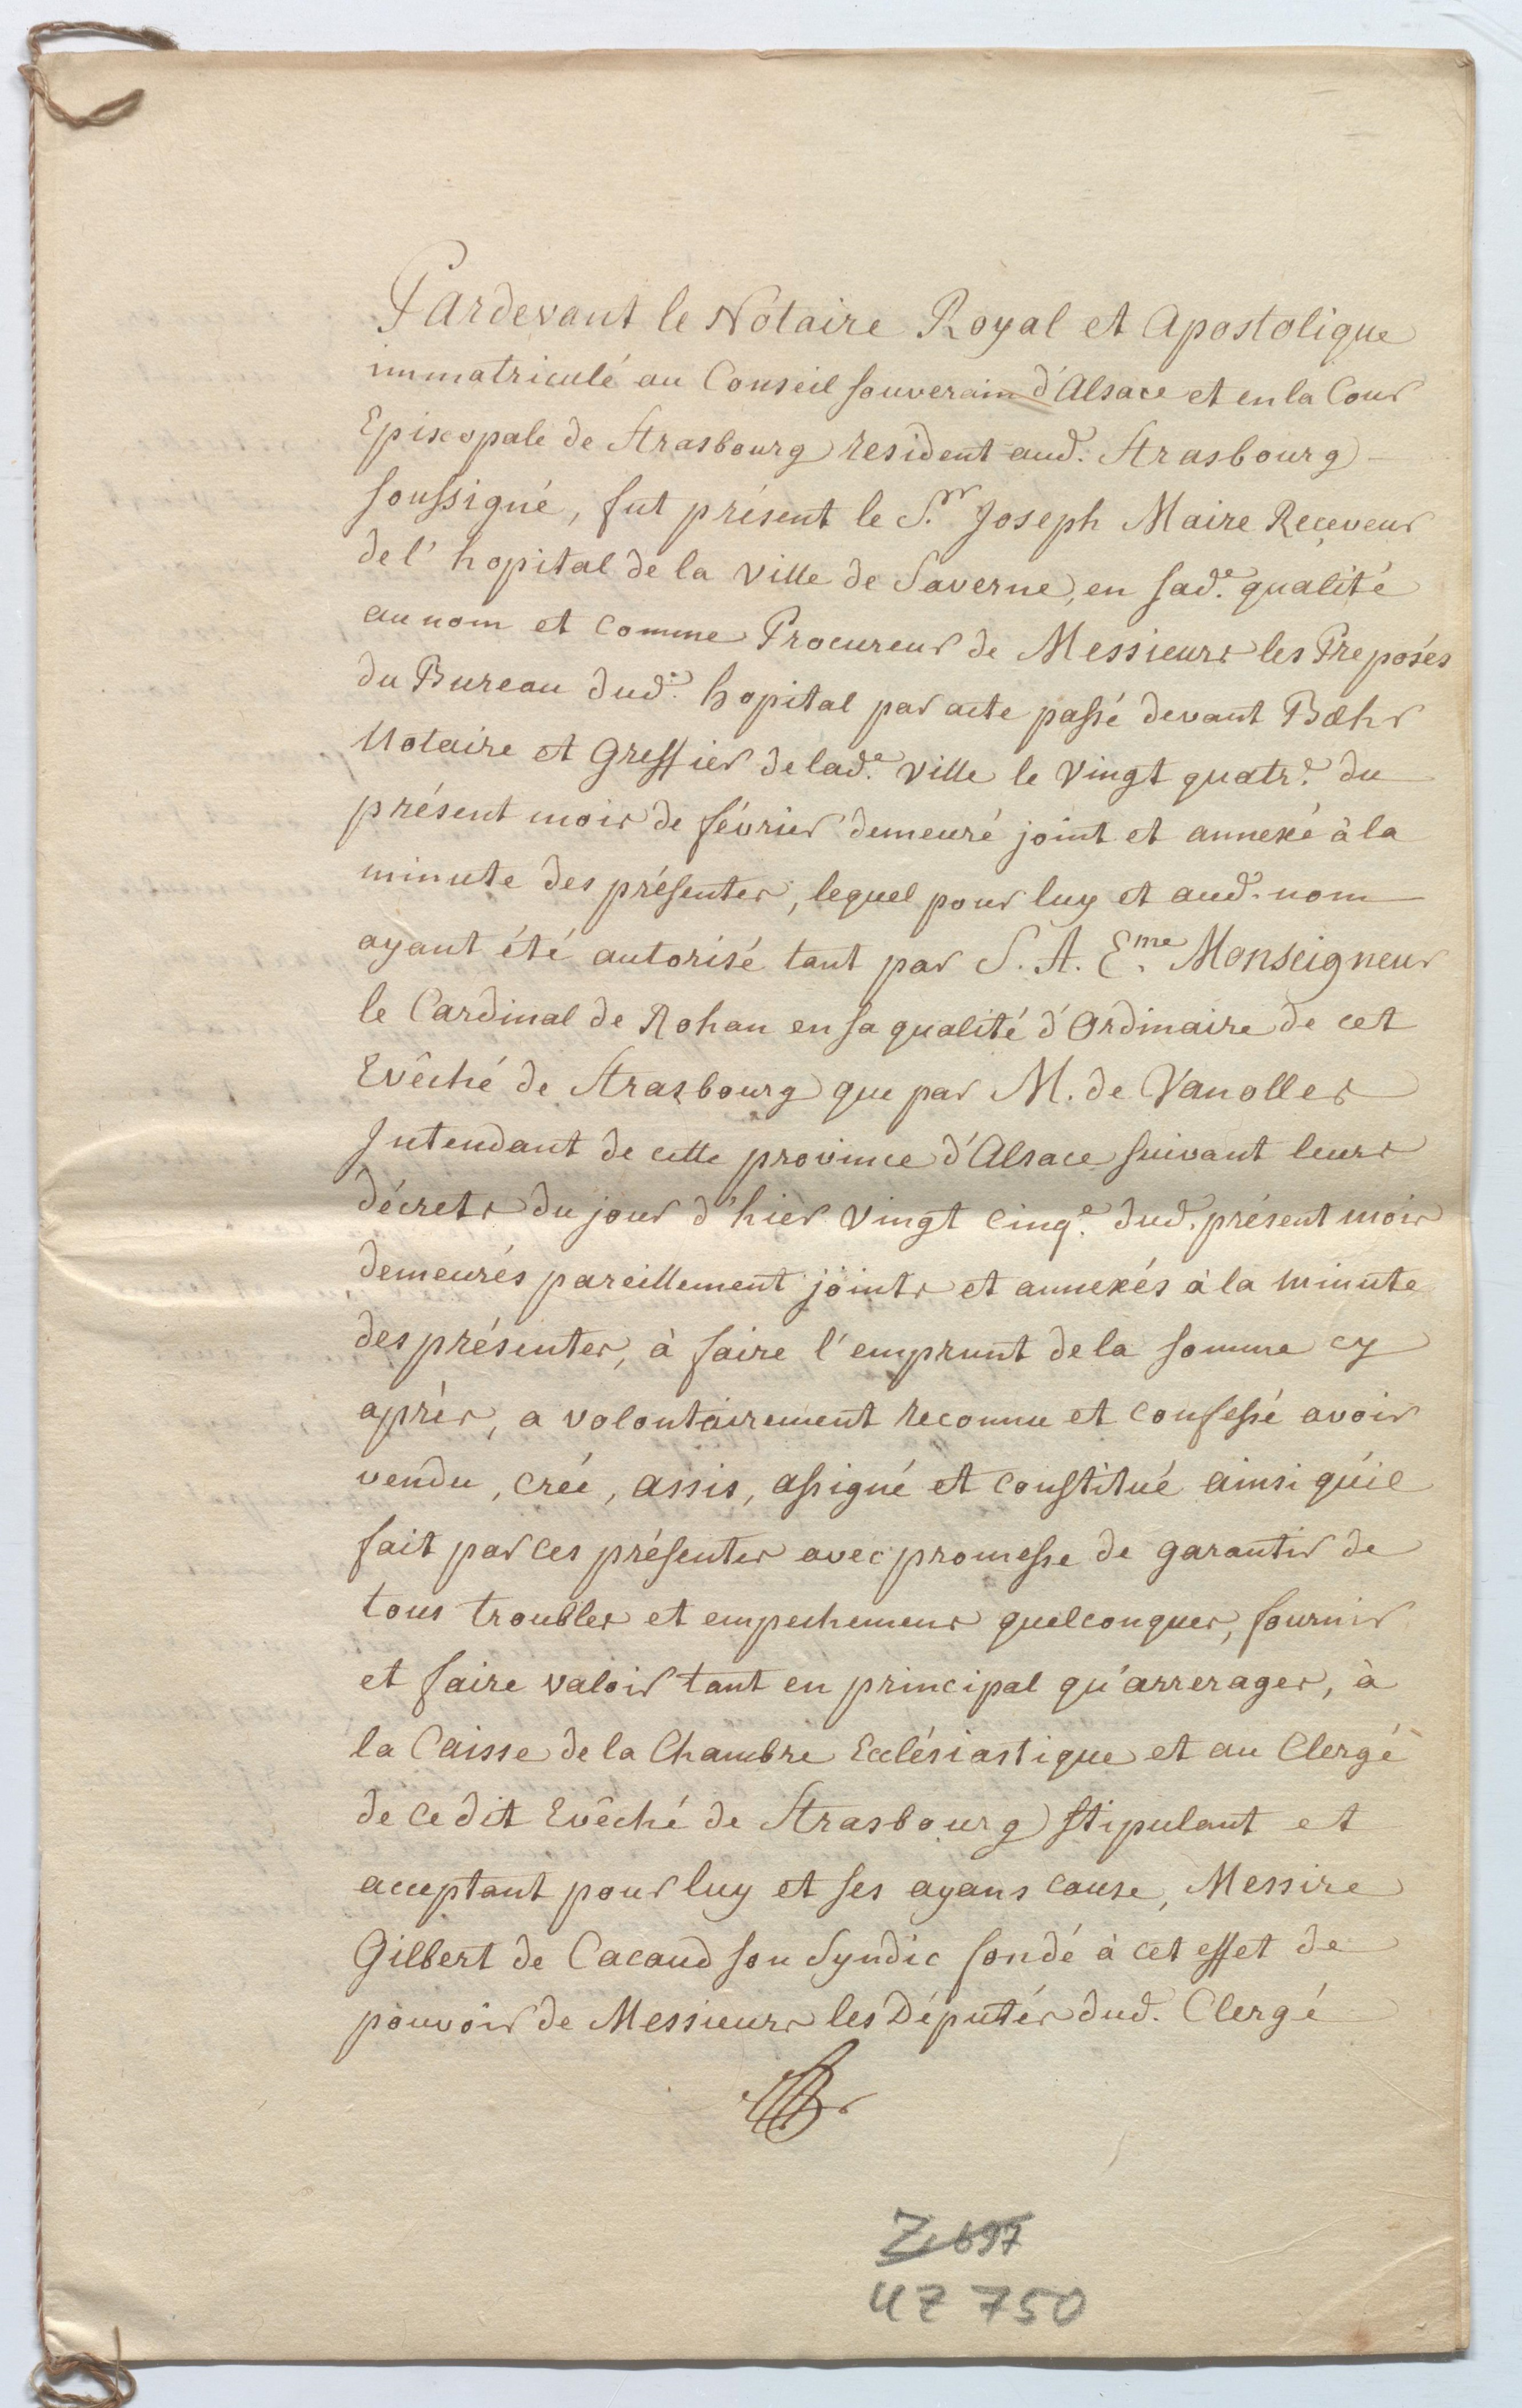 Pardevant le Notaire Royal et Apostolique
immatriculé au Conseil souverain d'Alsace et en la Cour
Episcopale de Strasbourg resident aud. Strasbourg
soussigné, fut présent le S.r Joseph Maire Receveur
de l'hopital de la ville de Saverne, en sad.e qualité
au nom et comme Procureur de Messieurs les Preposés
du Bureau dud. hopital par acte passé devant Bæhr
Notaire et Greffier de lad.e ville le vingt quatr.e du
présent mois de février demeuré joint et annexé à la
minute des présentes, lequel pour luy et aud. nom
ayant été autorisé tant par S. A. E.me Monseigneur
le Cardinal de Rohan en sa qualité d'Ordinaire de cet
Evêché de Strasbourg que par M. de Vanolles
Intendant de cette province d'Alsace suivant leurs
décrets du jour d'hier vingt cinq.e dud. présent mois
demeurés pareillement joints et annexés à la minute
des présentes, à faire l'emprunt de la somme cy
après, a volontairement reconnu et confessé avoir
vendu, créé, assis, assigné et constitué ainsi qu'il
fait par ces présentes avec promesse de garantir de
tous troubles et empechemens quelconques, fournir
et faire valoir tant en principal qu'arrerages, à
la Caisse de la Chambre Ecclésiastique et au Clergé
de cedit Evêché de Strasbourg stipulant et
acceptant pour luy et ses ayans cause, Messire
Gilbert de Cacaud son Syndic fondé à cet effet de
pouvoir de Messieurs les Députés dud. Clergé
Z 697
UZ 750